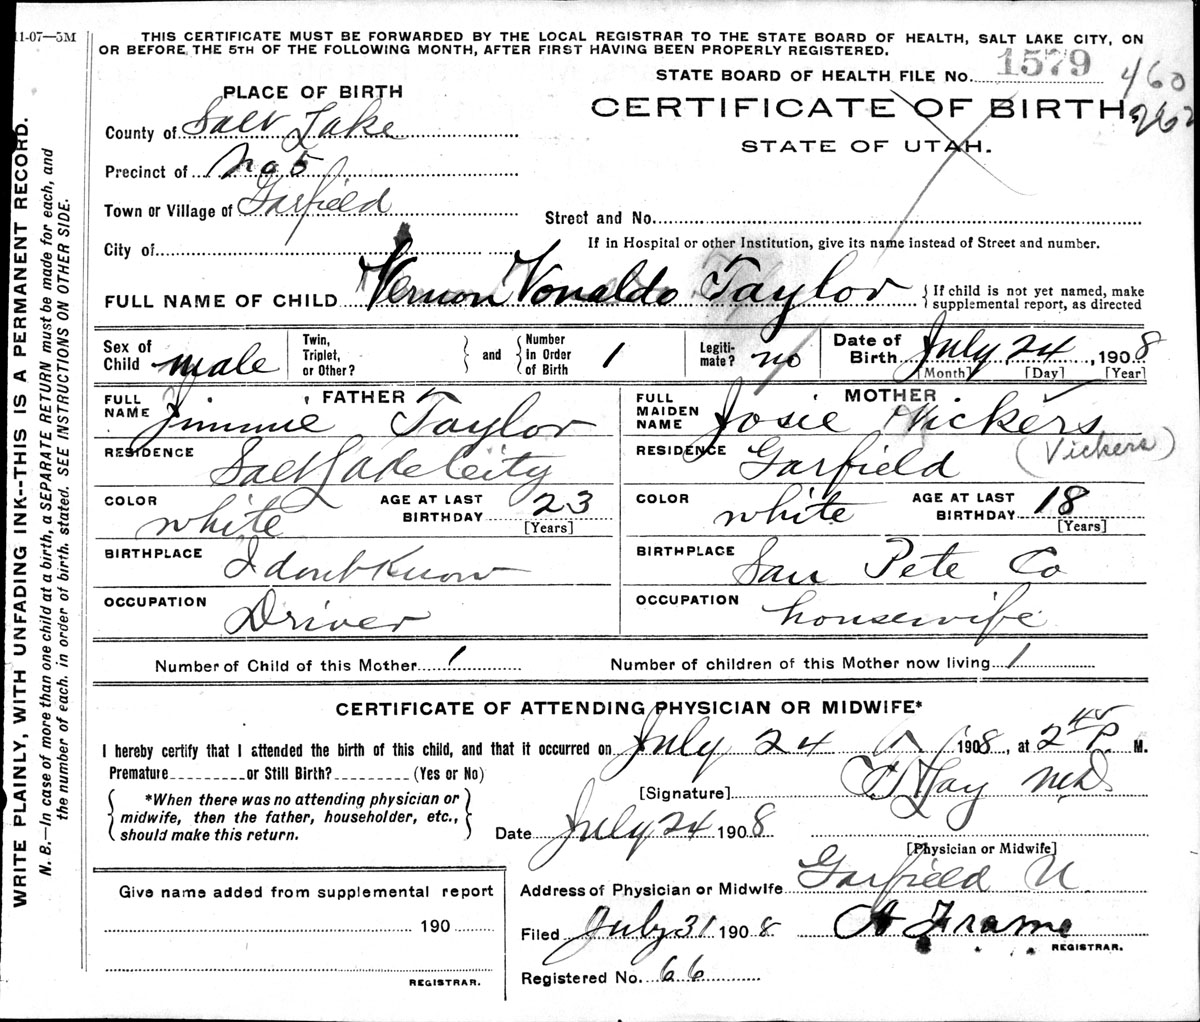 11-07—5M
THIS CERTIFICATE MUST BE FORWARDED BY THE LOCAL REGISTRAR TO THE STATE BOARD OF HEALTH, SALT LAKE CITY, ON
OR BEFORE THE 5TH OF THE FOLLOWING MONTH, AFTER FIRST HAVING BEEN PROPERLY REGISTERED.
STATE BOARD OF HEALTH FILE No. 1579
460
262
PLACE OF BIRTH
CERTIFICATE OF BIRTH
STATE OF UTAH.
County of Salt Lake
Precinct of No 5
Town or Village of Garfield
Street and No.
City of
If in Hospital or other Institution, give its name instead of Street and number.
FULL NAME OF CHILD Vernon Vonaldo Taylor { If child is not yet named, make supplemental report, as directed
Sex of Child male Twin, Triplet, or Other? } and { Number in Order of Birth 1 Legiti-mate? no Date of Birth July 24, 1908
[Month] [Day] [Year]
FATHER
FULL NAME Jimmie Taylor
RESIDENCE Salt Lake City
COLOR white AGE AT LAST BIRTHDAY 23 [Years]
BIRTHPLACE I dont Know
OCCUPATION Driver
MOTHER
FULL MAIDEN NAME Josie Vickers
RESIDENCE Garfield (Vickers)
COLOR white AGE AT LAST BIRTHDAY 18 [Years]
BIRTHPLACE San Pete Co
OCCUPATION housewife
Number of Child of this Mother 1 Number of children of this Mother now living 1
CERTIFICATE OF ATTENDING PHYSICIAN OR MIDWIFE*
I hereby certify that I attended the birth of this child, and that it occurred on July 24 1908, at 2 45 P. M.
Premature or Still Birth? (Yes or No)
{ *When there was no attending physician or midwife, then the father, householder, etc., should make this return. }
[Signature] M.D.
Date July 24 1908
[Physician or Midwife]
Address of Physician or Midwife Garfield U
Filed July 31 1908 A Frame
REGISTRAR.
Registered No. 66
Give name added from supplemental report
190
REGISTRAR.
WRITE PLAINLY, WITH UNFADING INK--THIS IS A PERMANENT RECORD.
N. B.—In case of more than one child at a birth, a SEPARATE RETURN must be made for each, and
the number of each, in order of birth, stated. SEE INSTRUCTIONS ON OTHER SIDE.